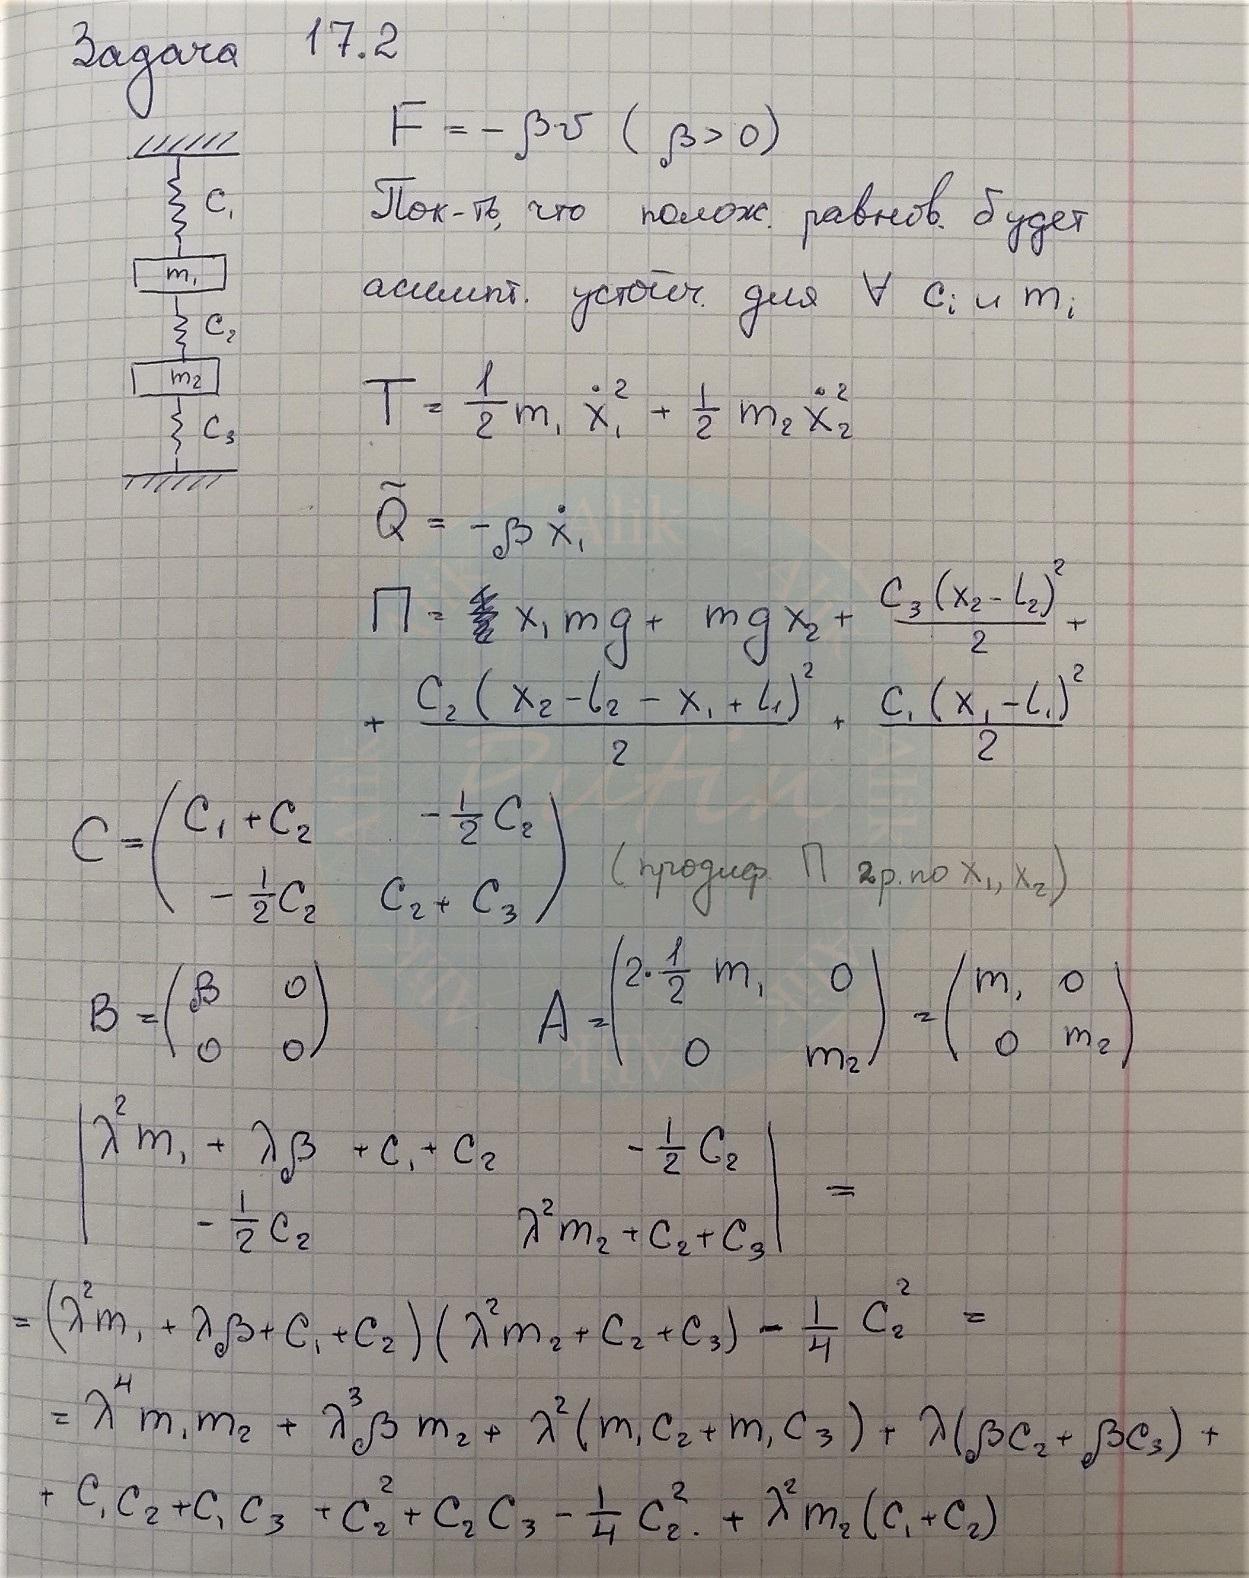 Задача 17.2
F = -βv (β > 0)
Пок-ть, что полож. равнов. будет
асимпт. устойч. для ∀ c_i и m_i
C₁
m₁
C₂
m₂
C₃
T = 1/2 m₁ ẋ₁² + 1/2 m₂ ẋ₂²
Q̃ = -β ẋ₁
П = x₁mg + mgx₂ + C₃(x₂-L₂)²/2 +
+ C₂(x₂-L₂-x₁+L₁)²/2 + C₁(x₁-L₁)²/2
C = ( C₁+C₂ -1/2 C₂
-1/2 C₂ C₂+C₃ ) (продиф. П 2р. по x₁, x₂)
B = ( β 0 A = ( 2·1/2 m₁ 0 = ( m₁ 0
0 0 ) 0 m₂ ) 0 m₂ )
| λ²m₁ + λβ + C₁ + C₂ -1/2 C₂ | =
| -1/2 C₂ λ²m₂ + C₂ + C₃ |
= (λ²m₁ + λβ + C₁ + C₂)(λ²m₂ + C₂ + C₃) - 1/4 C₂² =
= λ⁴m₁m₂ + λ³βm₂ + λ²(m₁C₂ + m₁C₃) + λ(βC₂ + βC₃) +
+ C₁C₂ + C₁C₃ + C₂² + C₂C₃ - 1/4 C₂². + λ²m₂(C₁+C₂)
Alik
Alik
Alik
Alik
Alik
Alik
Alik